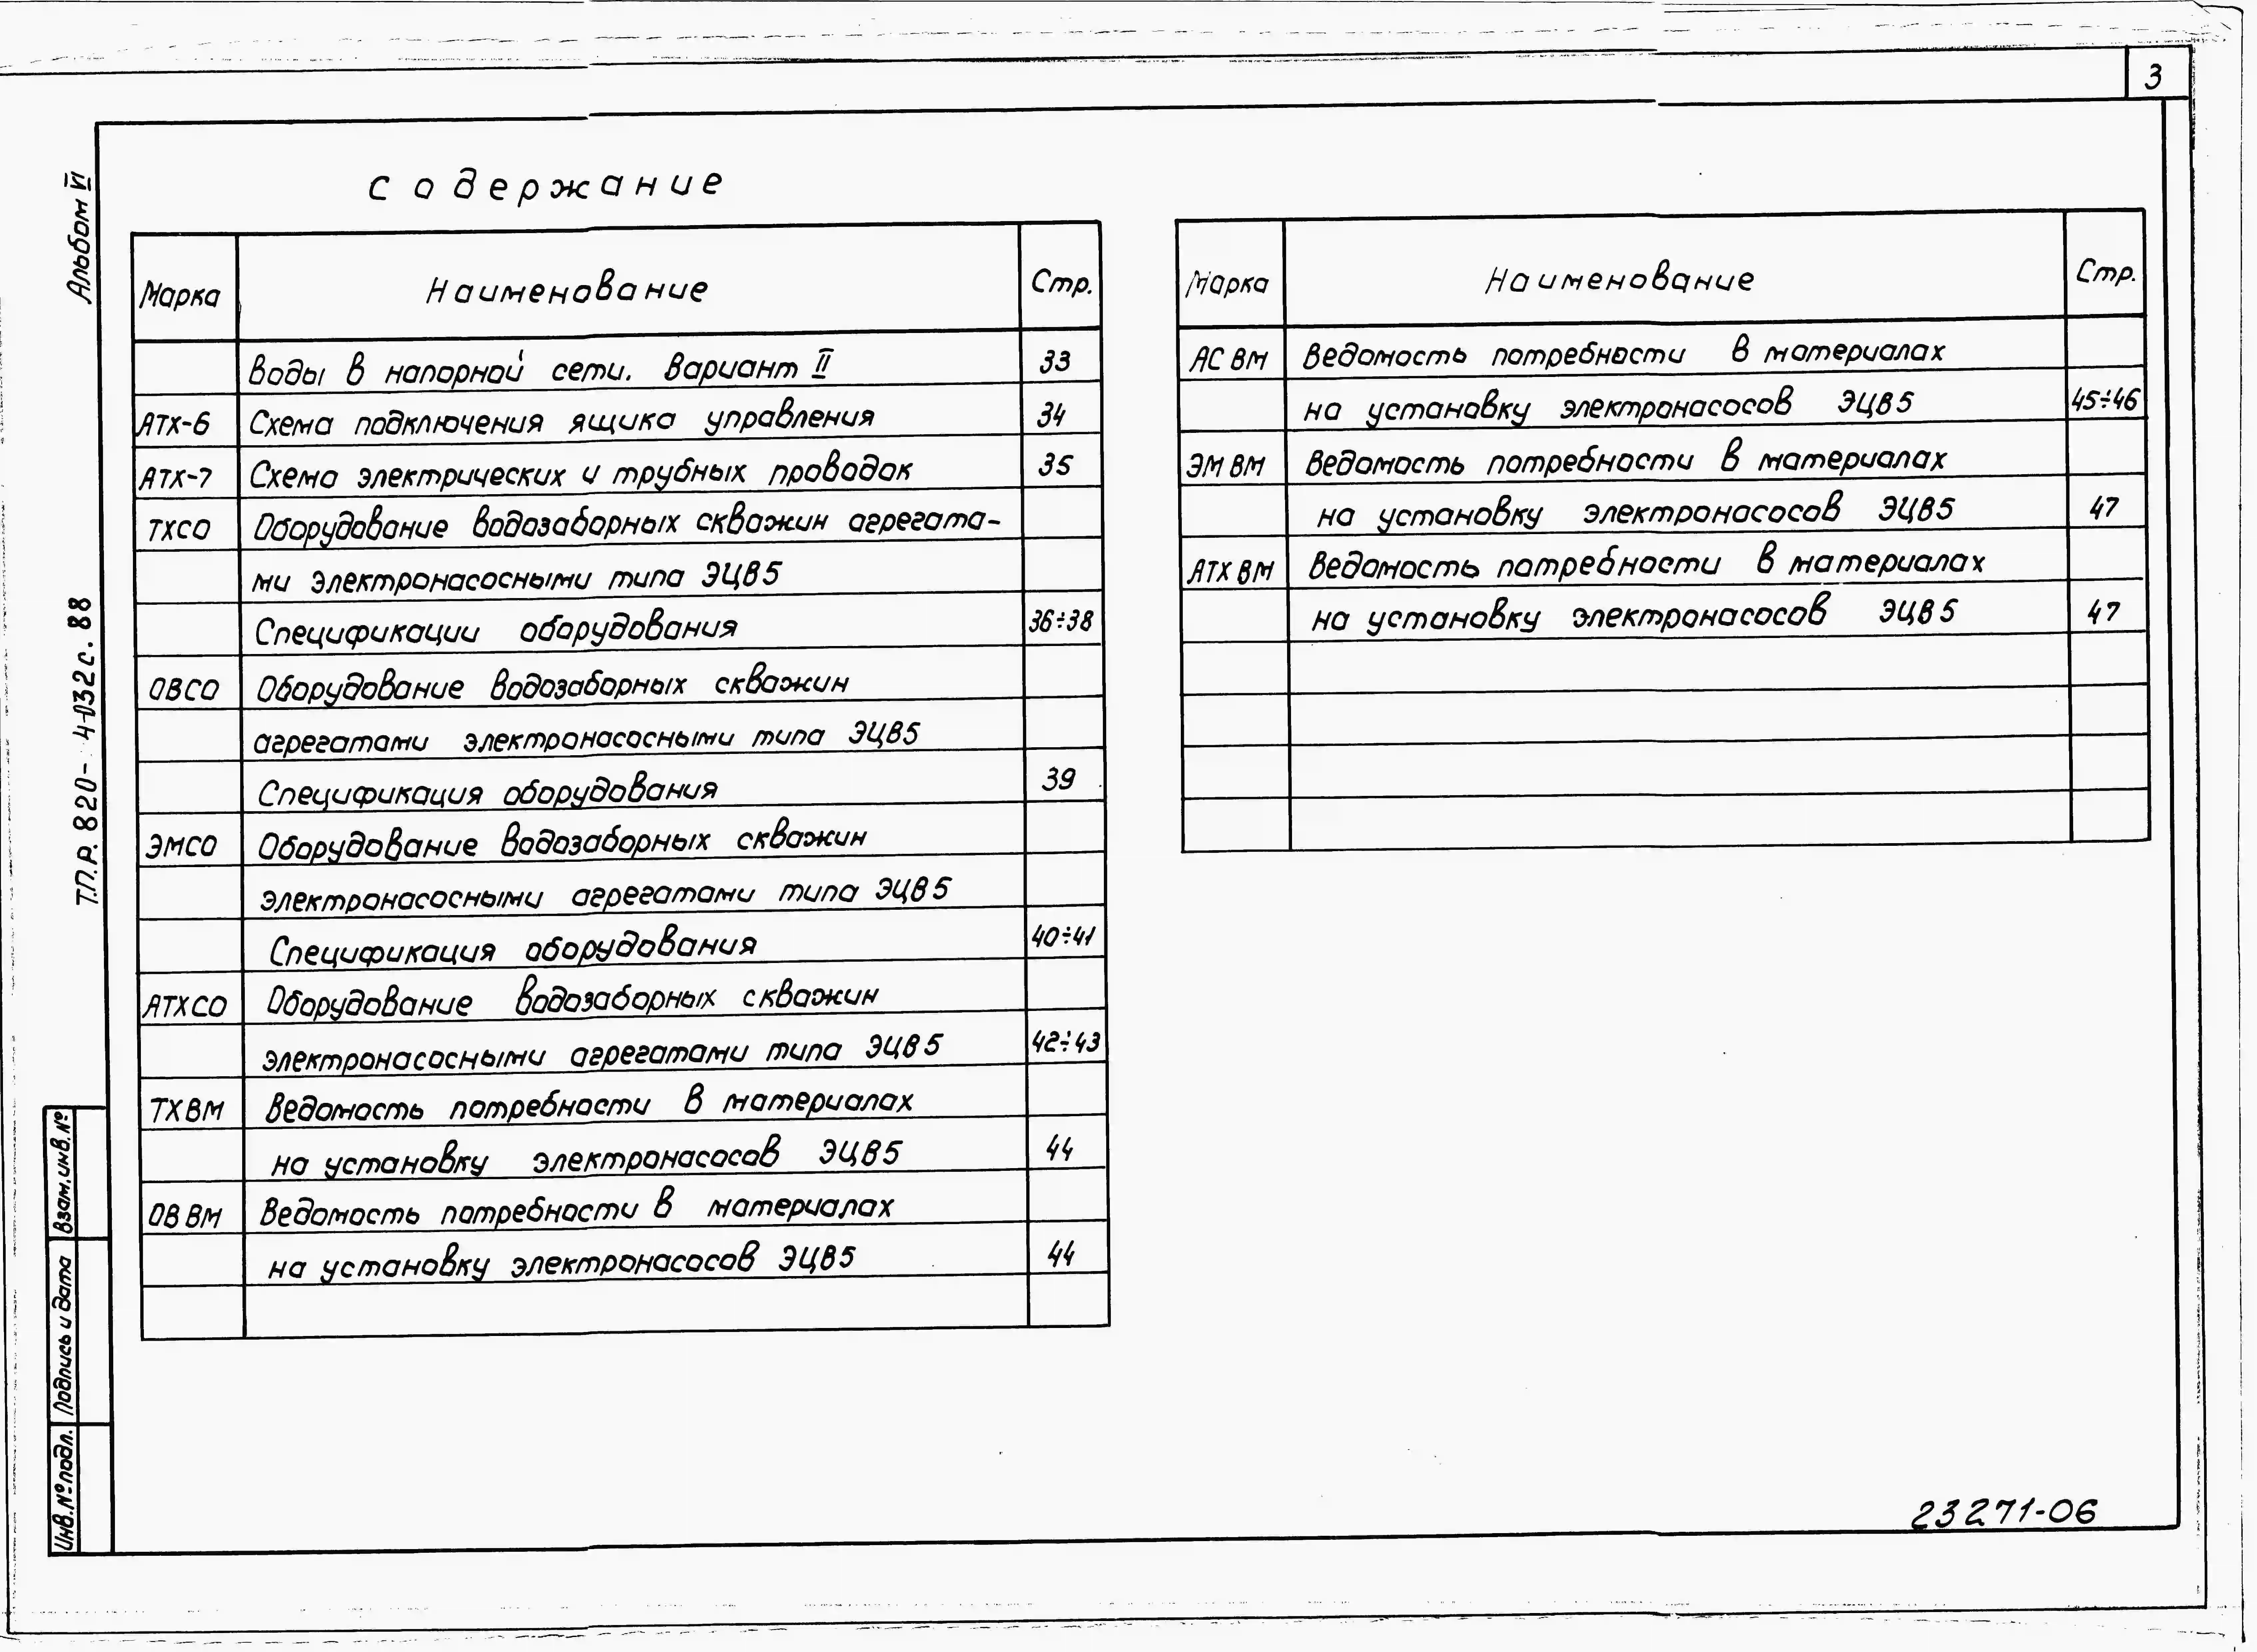 3
Альбом VI
Т.П.Р. 820-4-032с.88
содержание
Марка Наименование Стр.
воды в напорной сети. Вариант II 33
АТХ-6 Схема подключения ящика управления 34
АТХ-7 Схема электрических и трубных проводок 35
ТХСО Оборудование водозаборных скважин агрегата-
ми электронасосными типа ЭЦВ5
Спецификации оборудования 36÷38
ОВСО Оборудование водозаборных скважин
агрегатами электронасосными типа ЭЦВ5
Спецификация оборудования 39
ЭМСО Оборудование водозаборных скважин
электронасосными агрегатами типа ЭЦВ5
Спецификация оборудования 40÷41
АТХСО Оборудование водозаборных скважин
электронасосными агрегатами типа ЭЦВ5 42÷43
ТХВМ Ведомость потребности в материалах
на установку электронасосов ЭЦВ5 44
ОВВМ Ведомость потребности в материалах
на установку электронасосов ЭЦВ5 44
Марка Наименование Стр.
АСВМ Ведомость потребности в материалах
на установку электронасосов ЭЦВ5 45÷46
ЭМВМ Ведомость потребности в материалах
на установку электронасосов ЭЦВ5 47
АТХВМ Ведомость потребности в материалах
на установку электронасосов ЭЦВ5 47
Взам.инв.№
Подпись и дата
Инв.№подл.
23271-06